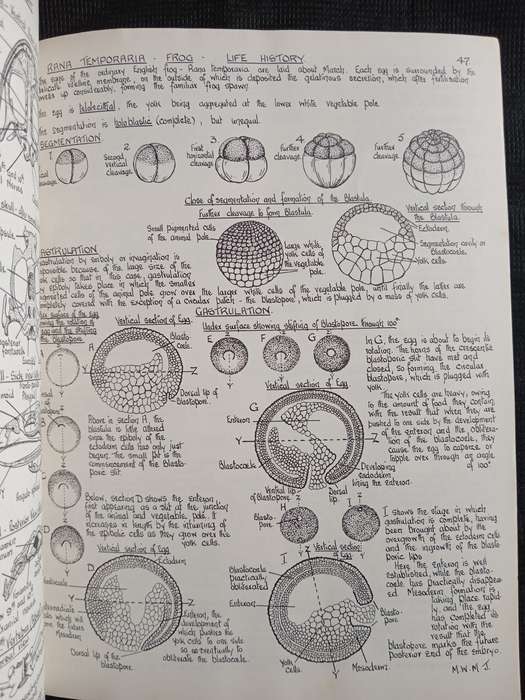 RANA TEMPORARIA - FROG - LIFE HISTORY.
47
The eggs of the ordinary English frog - Rana Temporaria are laid about March. Each egg is surrounded by the
delicate vitelline membrane, on the outside of which is deposited the gelatinous secretion, which after fertilisation
swells up considerably, forming the familiar frog spawn.
The egg is telolecithal, the yolk being aggregated at the lower white vegetable pole.
The segmentation is holoblastic (complete), but unequal.
SEGMENTATION
1
2
3
4
5
cleavage.
Second vertical cleavage.
First horizontal cleavage
Further cleavage.
Further cleavage.
Close of segmentation and formation of the Blastula.
Further cleavage to form Blastula.
Vertical section through the Blastula.
Small pigmented cells of the animal pole.
Large white yolk cells of the vegetable pole.
Ectoderm.
Segmentation cavity or Blastocoele.
Yolk cells.
GASTRULATION
Gastrulation by emboly or invagination is
impossible because of the large size of the
yolk cells so that in this case, gastrulation
by epiboly takes place in which the smaller
pigmented cells of the animal pole grow over the larger white cells of the vegetable pole, until finally the latter are
completely covered with the exception of a circular patch - the blastopore, which is plugged by a mass of yolk cells.
GASTRULATION.
Vertical section of Egg.
Under surface showing shifting of Blastopore through 100°
A
Blastocoele.
Z
Y
Dorsal lip of Blastopore.
E
F
G
Y
Vertical section of Egg
In G, the egg is about to begin its
rotation. The horns of the crescentic
blastopore slit have met and
closed, so forming the circular
blastopore, which is plugged with
yolk.
The yolk cells are heavy, owing
to the amount of food they contain
with the result that when they are
pushed to one side by the development
of the enteron and the obliteration
of the blastocoele, they
cause the egg to capsize, or
topple over through an angle
of 100°
G
Enteron
Y
Z
Blastocoele
Ventral lip of Blastopore
Dorsal lip.
Developing endoderm lining the enteron.
Above in section A, the
blastula is little altered
since the epiboly of the
ectoderm cells has only just
begun. The small pit is the
commencement of the Blastopore
slit.
Below, section D shows the enteron,
first appearing as a slit at the junction
of the animal and vegetable poles. It
increases in length by the inturning of
the epibolic cells as they grow over the
yolk cells.
D
Z
H
Blastopore.
I
I shows the stage in which
gastrulation is complete, having
been brought about by the
overgrowth of the ectoderm cells
and the ingrowth of the blastoporic
lips.
Here the enteron is well
established, while the blastocoele
has practically disappeared.
Mesoderm formation is
taking place rapidly,
and the egg
has completed its
rotation with the
result that the
blastopore marks the future
posterior end of the embryo.
Vertical section of Egg
D
Ectoderm
Z
Y
Mesoderm
Enteron, the development of which pushes the yolk cells to one side so as eventually to obliterate the blastocoele.
Dorsal lip of the blastopore.
Vertical section of Egg
I
Z
Blastocoele practically obliterated
Enteron
Blastopore
Yolk cells.
Mesoderm.
M.W.M.J.